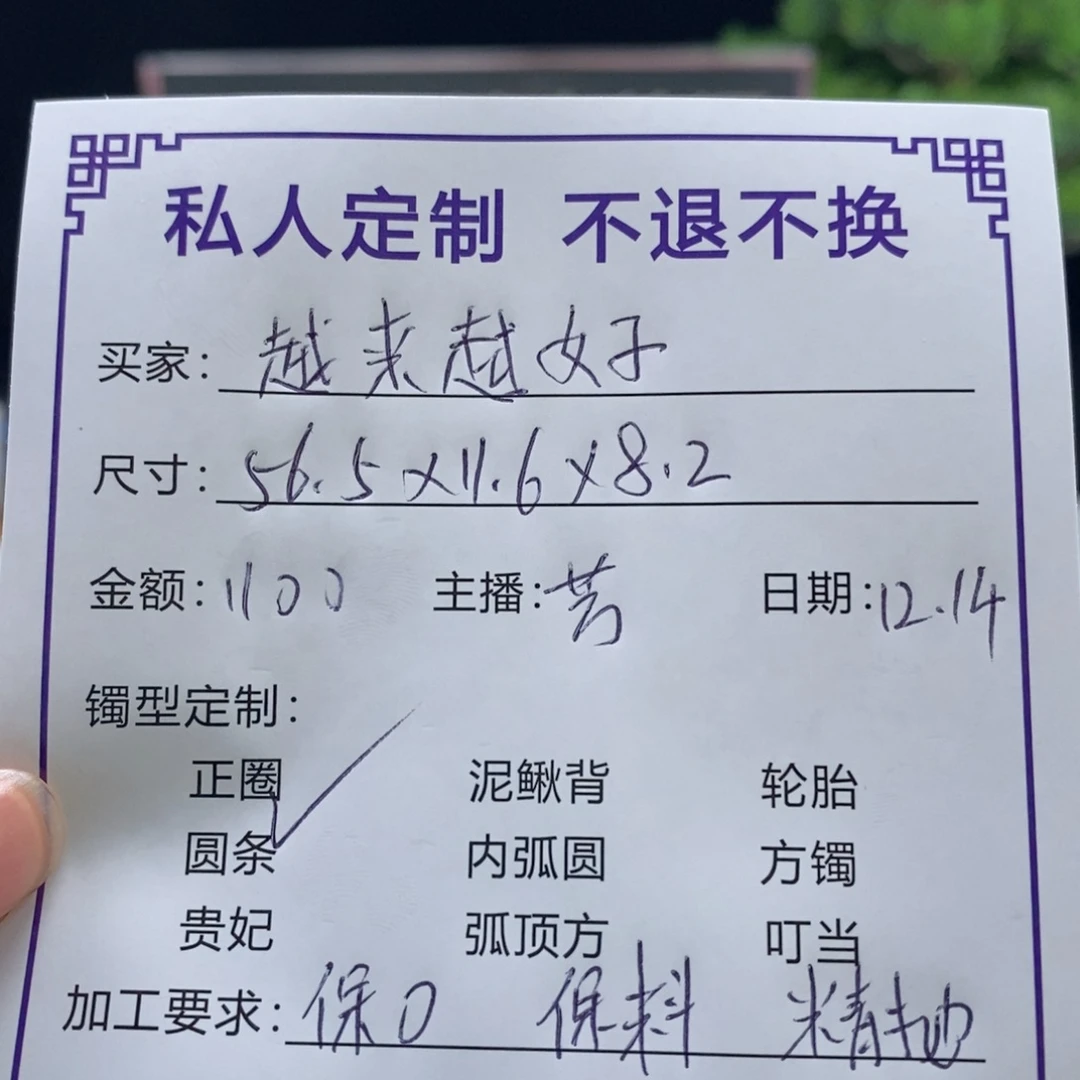 私人定制 不退不换
买家：越来越好
尺寸：56.5×11.6×8.2
金额：1100 主播：芳 日期：12.14
镯型定制：
正圈 泥鳅背 轮胎
圆条 内弧圆 方镯
贵妃 弧顶方 叮当
加工要求：保口 保料 精抛